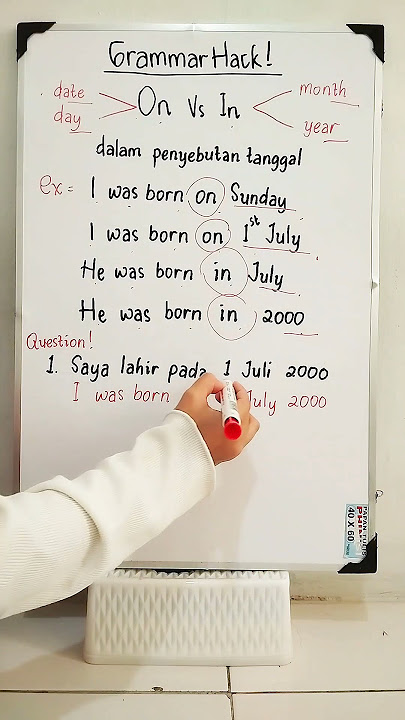 Grammar Hack!
date
day
On Vs In
month
year
dalam penyebutan tanggal
ex = I was born on Sunday
I was born on 1st July
He was born in July
He was born in 2000
Question!
1. Saya lahir pada 1 Juli 2000
I was born July 2000
40 X 60